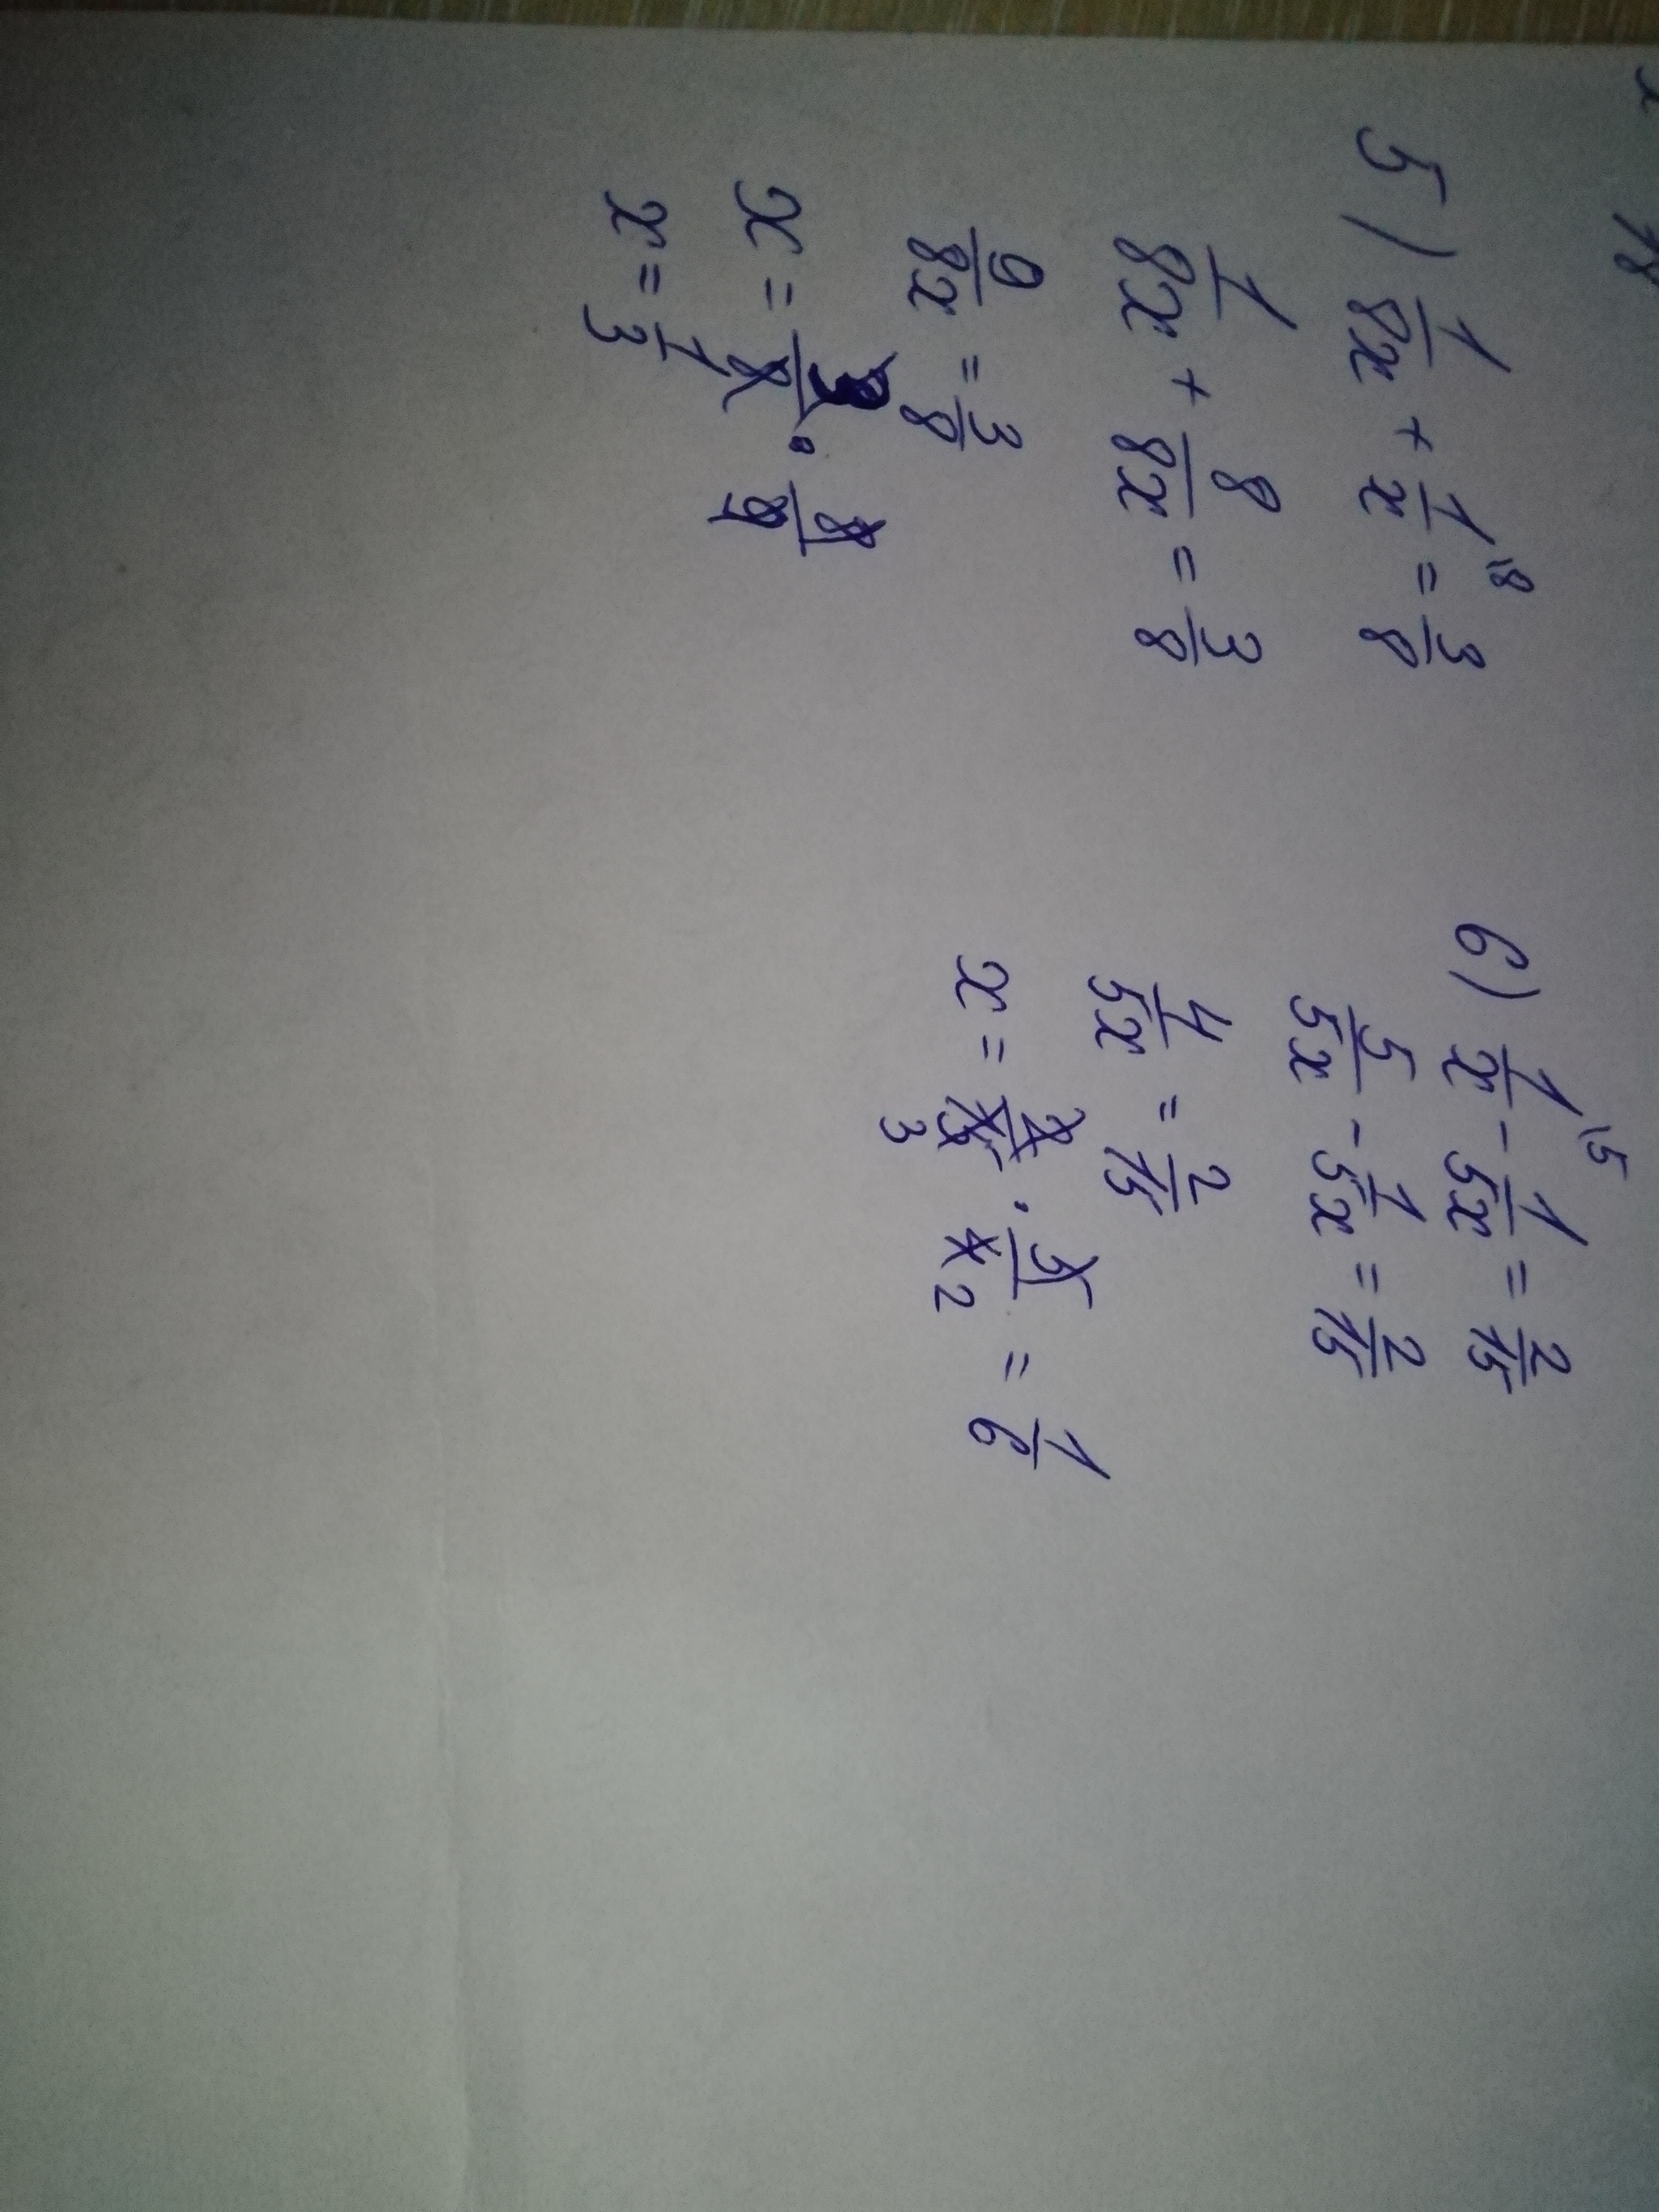 5) 1/8x + 1/x \8 = 3/8
1/8x + 8/8x = 3/8
9/8x = 3/8
x = 3/8 · 8/9
x = 1/3
6) 1/x \5 - 1/5x = 2/15
5/5x - 1/5x = 2/15
4/5x = 2/15
x = 2/15 3 · 5/4 2 = 1/6